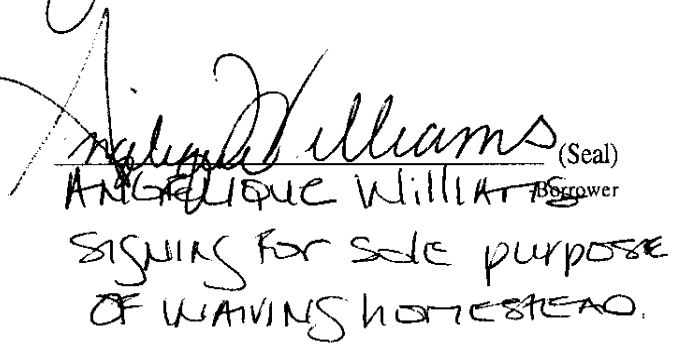 Angelique Williams (Seal)
ANGELIQUE WILLIAMS Borrower
SIGNING FOR SOLE PURPOSE
OF WAIVING HOMESTEAD.